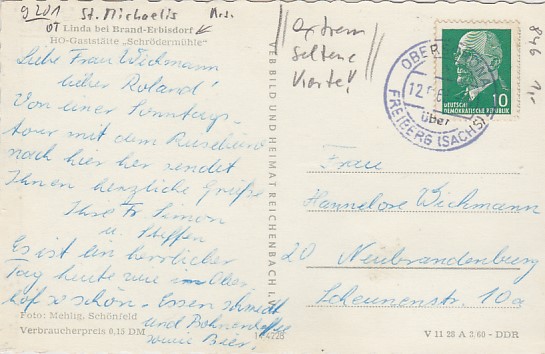 9201 St. Michaelis Mrs.
OT Linda bei Brand-Erbisdorf
HO-Gaststätte „Schrödermühle“
extrem
seltene
Karte!
Liebe Frau Wichmann
lieber Roland!
Von einer Sonntags-
tour mit dem Reisebüro
nach hier her sendet
Ihnen herzliche Grüße
Ihre Fr. Simon
u. Steffen
Es ist ein herrlicher
Tag heute wie im Ober
hof so schön. Essen schmeckt
und Bohnenkaffee
sowie Bier.
Foto: Mehlig, Schönfeld
Verbraucherpreis 0,15 DM
VEB BILD UND HEIMAT REICHENBACH I. V.
OBER
12.
über
FREIBERG (SACHS)
10
DEUTSCHE
DEMOKRATISCHE REPUBLIK
846
Frau
Hannelore Wichmann
20 Neubrandenburg
Scheunenstr. 10a
V 11 28 A 3.60 - DDR